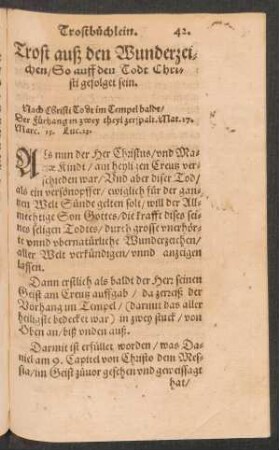 Trostbüchlein. 42.
Trost auß den Wunderzei-
chen/ So auff den Todt Chri-
sti gefolget sein.
Nach Christi Todt im Tempel baldt/
Der fürhang in zwey theyl zerspalt. Mat. 27.
Marc. 15. Luc. 23.
ALs nun der Her Christus/ vnd Ma-
Kindt/ am heyligen Creutz ver-
schieden war/ Vnd aber diser Tod/
als ein versönopffer/ ewiglich für der gan-
tzen Welt Sünde gelten solt/ will der All-
mechtige Son Gottes/ die krafft dises sei-
nes seligen Todtes/ durch grosse vnerhör-
te vnnd vbernatürliche Wunderzeichen/
aller Welt verkündigen/ vnnd anzeigen
lassen.
Dann erstlich als baldt der Herr seinen
Geist am Creutz auffgab/ da zerreiß der
Vorhang im Tempel/ (darmit das aller
heiligste bedecket war) in zwey stuck/ von
Oben an/ biß vnden auß.
Darmit ist erfüllet worden/ was Da-
niel am 9. Capitel von Christo dem Mes-
sia/ im Geist züuor gesehen vnd geweissagt
hat/